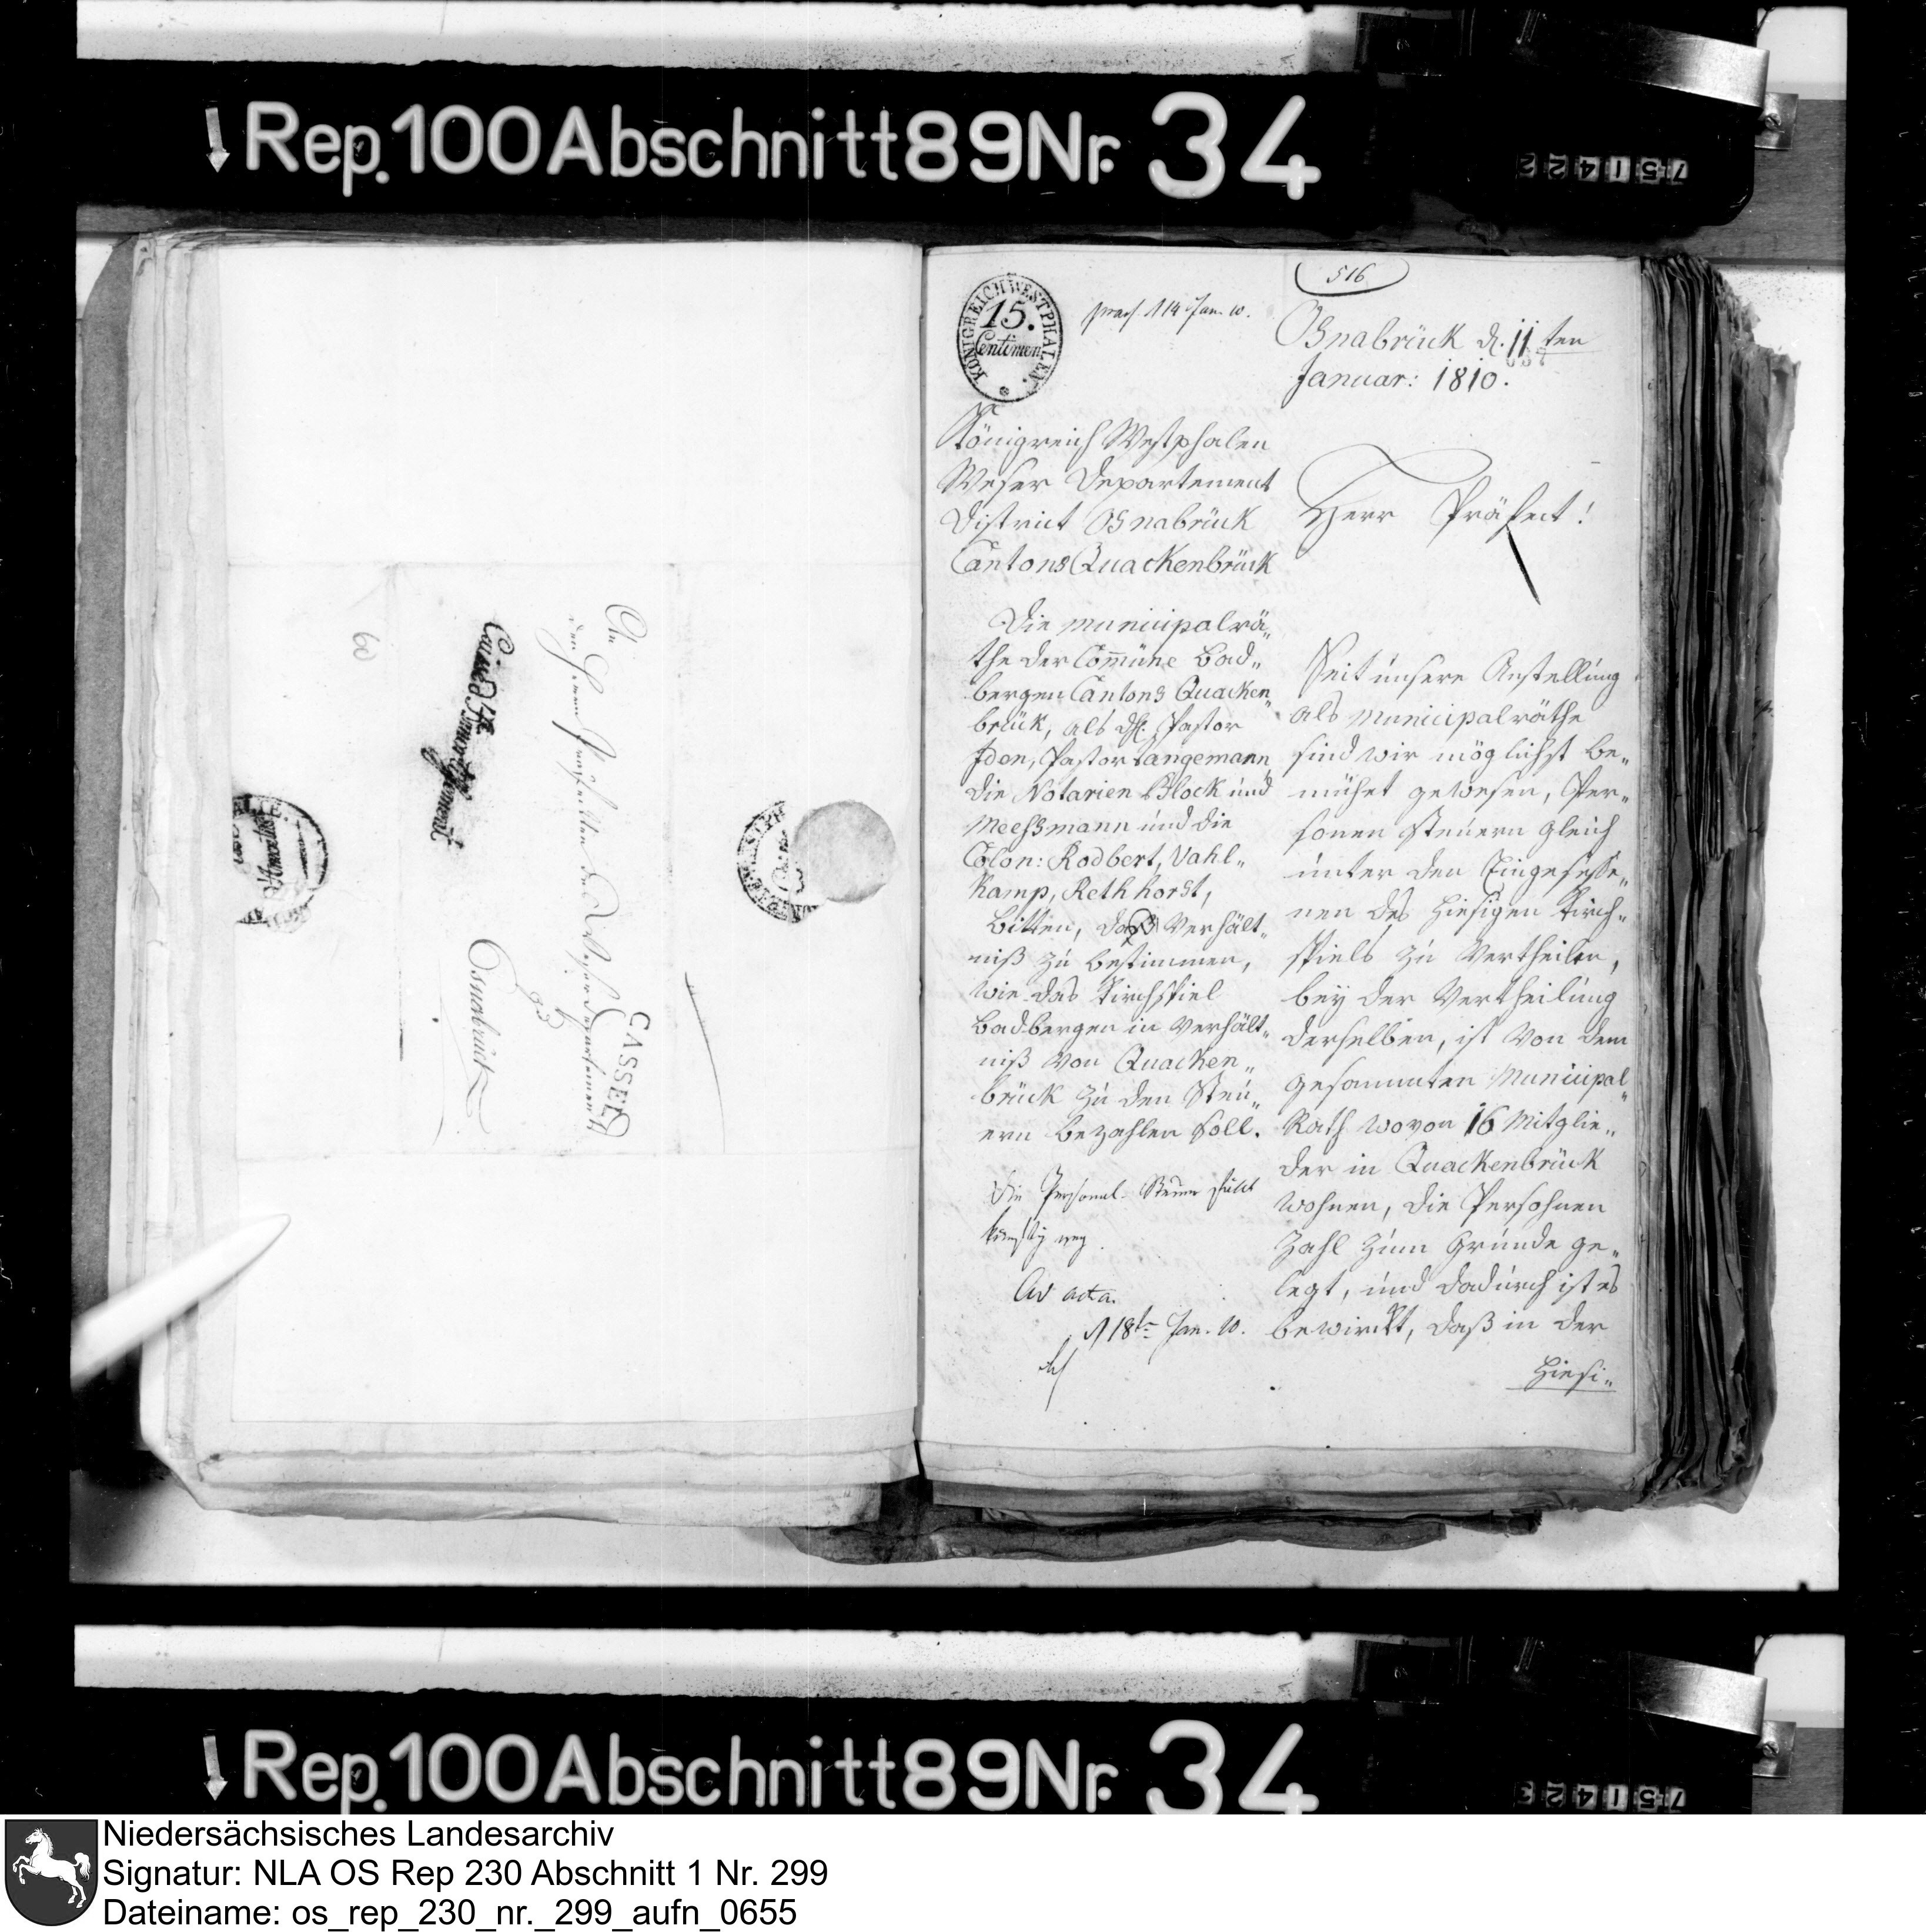 Rep. 100 Abschnitt 89 Nr. 34
751422
An
den Herrn Praefecten des Weserdepartements
zu
Osnabrück
CASSEL
Caisse D'Amortissement
60
516
KÖNIGREICH WESTPHALEN.
15.
Centimen
praes. d 14 Jan. 10.
Osnabrück d. 11ten
Januar: 1810.
Königreich Westphalen
Weser Departement
District Osnabrück
Cantons Quackenbrück
Die Municipalrä„
the der Com̄üne Bad„
bergen Cantons Quacken„
brück, als H. Pastor
Iden, Pastor Langemann
die Notarien Block und
Meeßmann und die
Colon: Rodbert, Vahl„
Kamp, Rethhorst,
bitten, das Verhält„
niß zu bestimmen,
wie das Kirchspiel
Badbergen in Verhält„
niß von Quacken„
brück zu den Steu„
ern bezahlen soll.
Die Personal-Steuer fällt
künftig weg
Ad acta.
d 18te Jan. 10.
Herr Präfect!
Seit unsere Anstellung
als Municipalräthe
sind wir möglichst be„
mühet gewesen, Per„
sonen Steuern gleich
unter den Eingesesse„
nen des hiesigen Kirch„
spiels zu vertheilen,
bey der Vertheilung
derselben, ist von dem
gesammten Municipal„
Rath wovon 16 Mitglie„
der in Quackenbrück
wohnen, die Persohnen
Zahl zum Grunde ge„
legt, und dadurch ist es
bewirckt, daß in der
hiesi„
Rep. 100 Abschnitt 89 Nr. 34
751423
Niedersächsisches Landesarchiv
Signatur: NLA OS Rep 230 Abschnitt 1 Nr. 299
Dateiname: os_rep_230_nr._299_aufn_0655